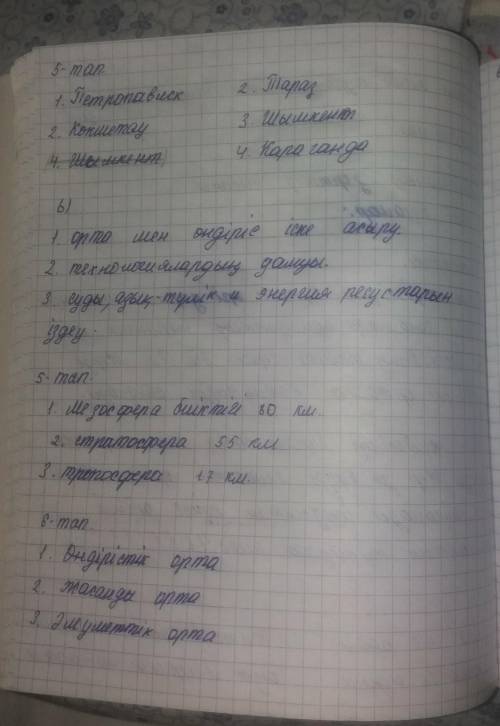 5-тап
1. Петропавлск
2. Тараз
2. Кокшетау
3. Шымкент
4. Шымкент
4. Караганда
b)
1. орта мен өндіріс іске асыру.
2. технологиялардың дамуы.
3. суды, азық-түлік и энергия ресустарын
іздеу.
5-тап.
1. Мезосфера биіктігі 80 км.
2. стратосфера 55 км
3. тропосфера 17 км.
6-тап
1. Өндірістік орта
2. Жасанды орта
3. Әлуметтік орта